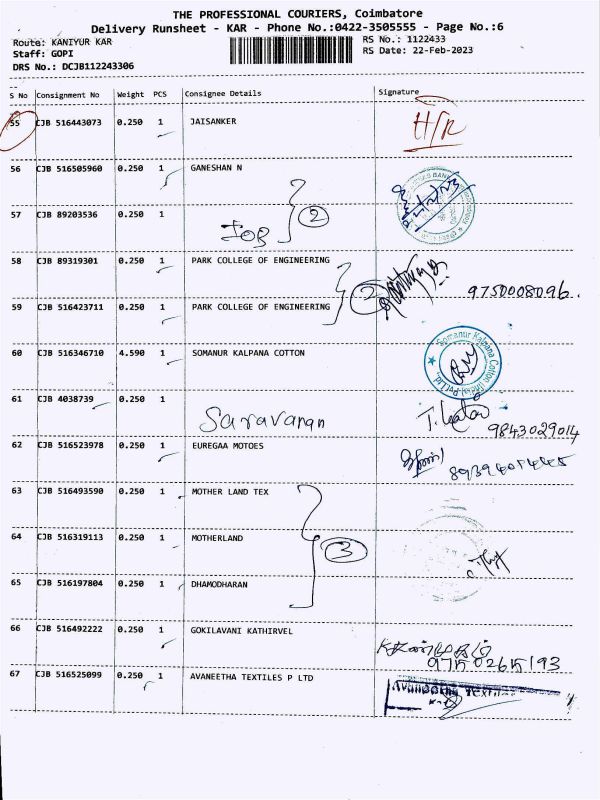 THE PROFESSIONAL COURIERS, Coimbatore
Delivery Runsheet - KAR - Phone No.:0422-3505555 - Page No.:6
Route: KANIYUR KAR RS No.: 1122433
Staff: GOPI RS Date: 22-Feb-2023
DRS No.: DCJB112243306
S No Consignment No Weight PCS Consignee Details Signature
55 CJB 516443073 0.250 1 JAISANKER H/R
56 CJB 516505960 0.250 1 GANESHAN N
57 CJB 89203536 0.250 1 IOB 2
58 CJB 89319301 0.250 1 PARK COLLEGE OF ENGINEERING
2 9750008096.
59 CJB 516423711 0.250 1 PARK COLLEGE OF ENGINEERING
60 CJB 516346710 4.590 1 SOMANUR KALPANA COTTON Somanur Kalpana Cotton (India) Pvt Ltd
61 CJB 4038739 0.250 1 Saravanan
9843029014
62 CJB 516523978 0.250 1 EUREGAA MOTOES
63 CJB 516493590 0.250 1 MOTHER LAND TEX
64 CJB 516319113 0.250 1 MOTHERLAND 3
65 CJB 516197804 0.250 1 DHAMODHARAN
66 CJB 516492222 0.250 1 GOKILAVANI KATHIRVEL
9715026515193
67 CJB 516525099 0.250 1 AVANEETHA TEXTILES P LTD Avaneetha Textiles